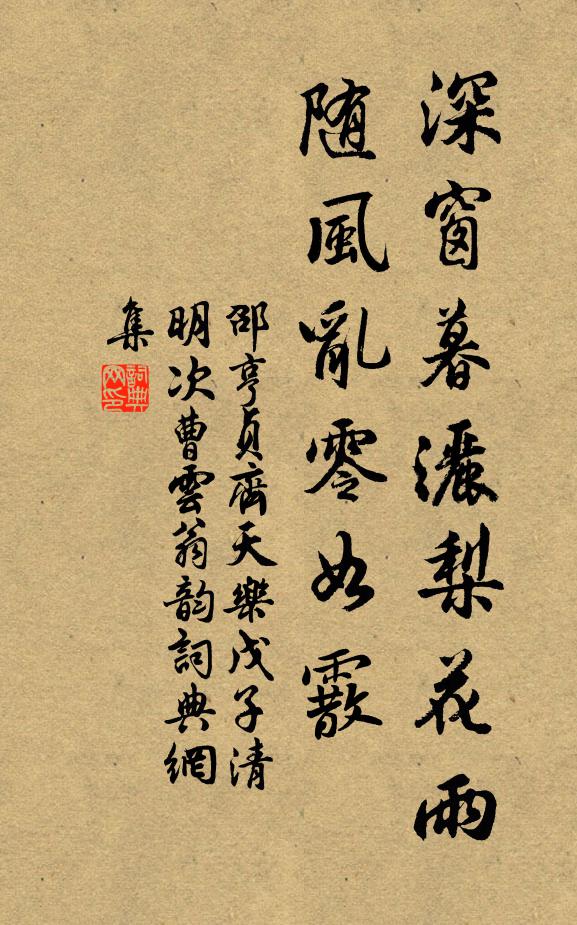 深窗暮灑梨花雨
随風亂零如霰
邵亨貞齊天樂戊子清
明次曹雲翁韵詞典網
集
詞典
网印